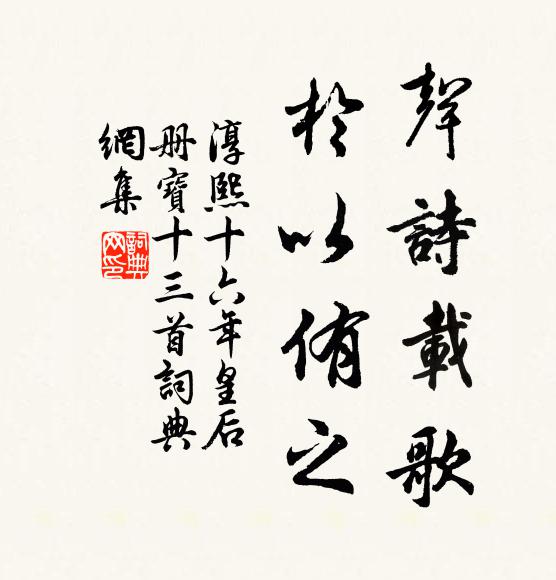 聲詩載歌
於以侑之
淳熙十六年皇后
册寶十三首詞典
網集
詞典
网印